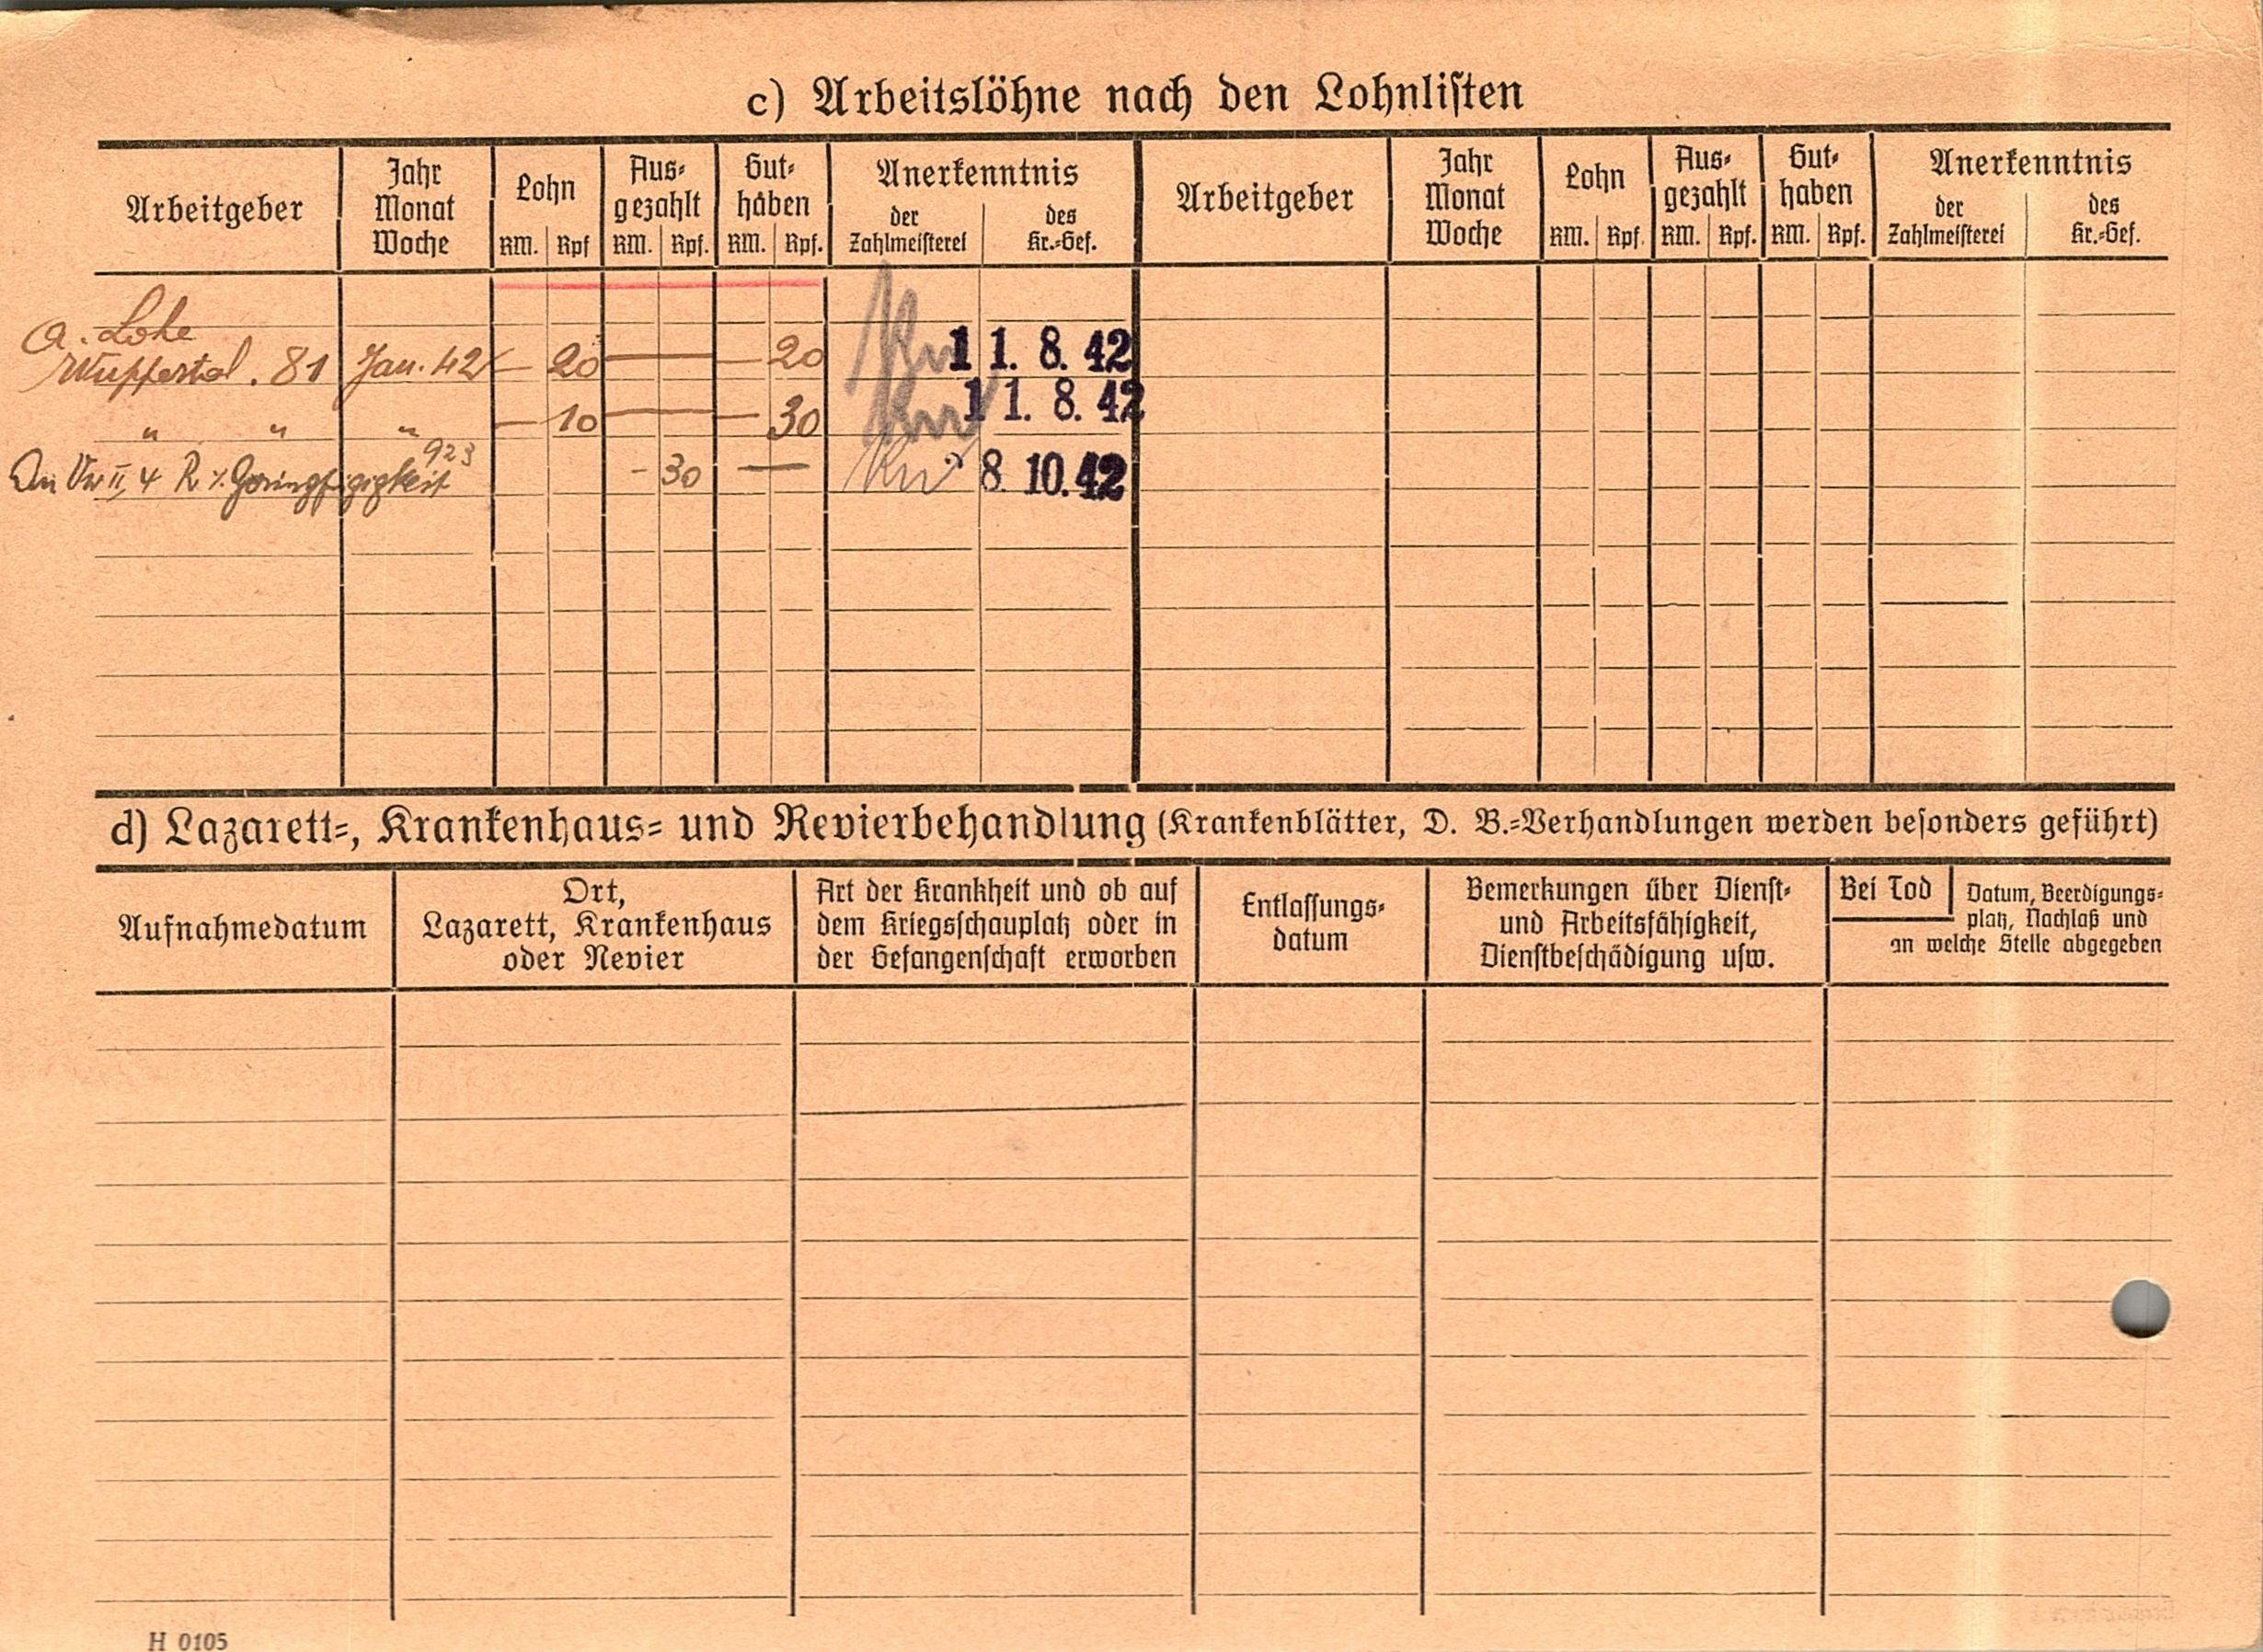 c) Arbeitslöhne nach den Lohnliſten
Arbeitgeber
Jahr
Monat
Woche
Lohn
RM. Rpf
Aus-
gezahlt
RM. Rpf.
Gut-
haben
RM. Rpf.
Anerkenntnis
der
Zahlmeiſterei
des
Kr.-Gef.
Arbeitgeber
Jahr
Monat
Woche
Lohn
RM. Rpf.
Aus-
gezahlt
RM. Rpf.
Gut-
haben
RM. Rpf.
Anerkenntnis
der
Zahlmeiſterei
des
Kr.-Gef.
A. Lohe
Wuppertal. 81 Jan. 42 — 20 — — 20 11. 8. 42
" " " — 10 — — 30 11. 8. 42
923
An Vw II, 4 R % Geringfügigkeit - 30 — 8. 10. 42
d) Lazarett-, Krankenhaus- und Revierbehandlung (Krankenblätter, D. B.-Verhandlungen werden beſonders geführt)
Aufnahmedatum
Ort,
Lazarett, Krankenhaus
oder Revier
Art der Krankheit und ob auf
dem Kriegsſchauplatz oder in
der Gefangenſchaft erworben
Entlaſſungs-
datum
Bemerkungen über Dienſt-
und Arbeitsfähigkeit,
Dienſtbeſchädigung uſw.
Bei Tod
Datum, Beerdigungs-
platz, Nachlaß und
an welche Stelle abgegeben
H 0105